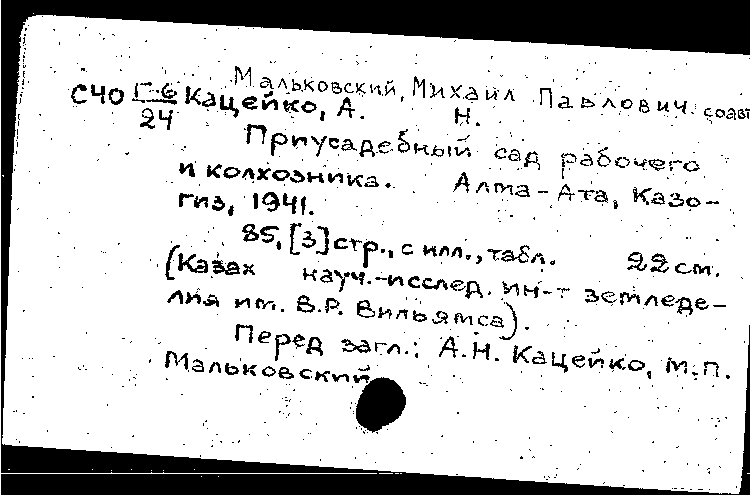 Мальковский, Михаил Павлович. соавт
С40 Г-6 Кацейко, А. Н.
24
Приусадебный сад рабочего
и колхозника. Алма-Ата, Казо-
гиз, 1941.
85, [3] стр., с илл., табл. 22 см.
(Казах науч.-исслед. ин-т земледе-
лия им. В.Р. Вильямса).
Перед загл.: А.Н. Кацейко, М.П.
Мальковский